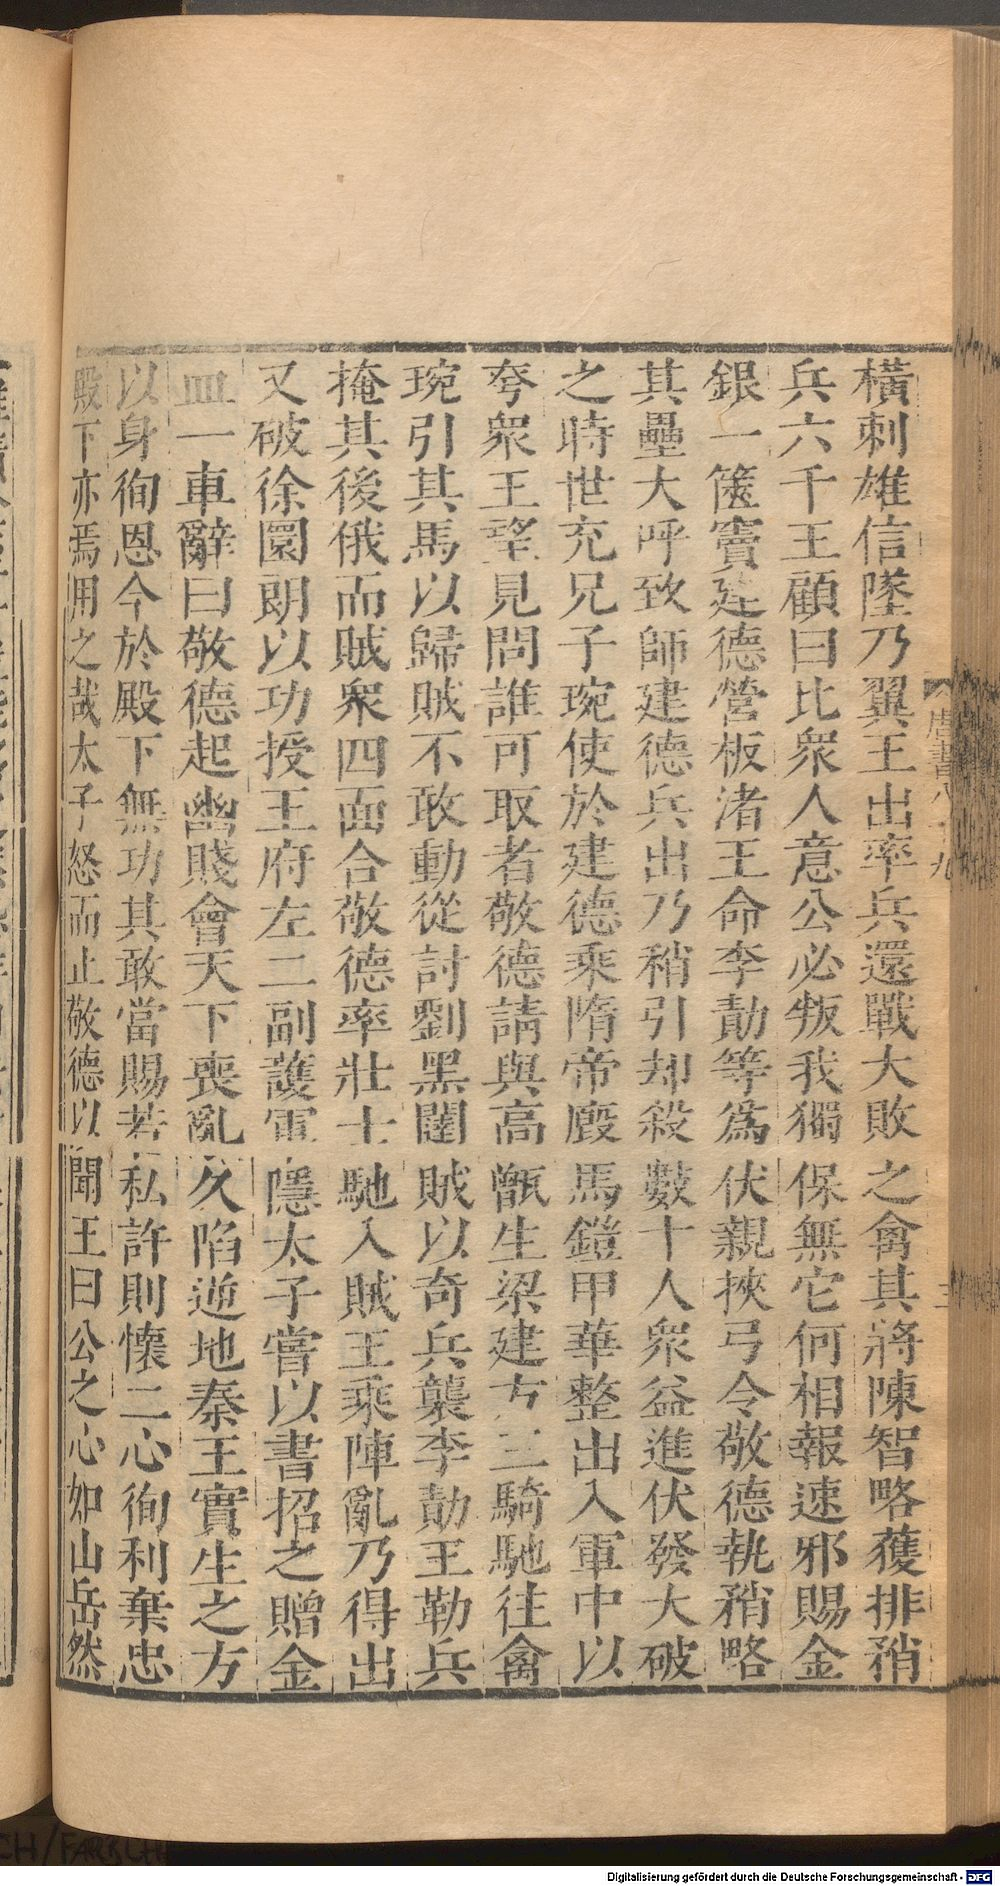 橫刺雄信墜乃翼王出率兵還戰大敗之禽其將陳智略獲排矟
兵六千王顧曰比衆人意公必叛我獨保無它何相報速邪賜金
銀一篋竇建德營板渚王命李勣等爲伏親挾弓令敬德執矟略
其壘大呼致師建德兵出乃稍引却殺數十人衆益進伏發大破
之時世充兄子琬使於建德乘隋帝廄馬鎧甲華整出入軍中以
夸衆王望見問誰可取者敬德請與高甑生梁建方三騎馳往禽
琬引其馬以歸賊不敢動從討劉黑闥賊以奇兵襲李勣王勒兵
掩其後俄而賊衆四面合敬德率壯士馳入賊王乘陣亂乃得出
又破徐圓朗以功授王府左二副護軍隱太子嘗以書招之贈金
皿一車辭曰敬德起幽賤會天下喪亂久陷逆地秦王實生之方
以身徇恩今於殿下無功其敢當賜若私許則懷二心徇利棄忠
殿下亦焉用之哉太子怒而止敬德以聞王曰公之心如山岳然
唐書八十九
Digitalisierung gefördert durch die Deutsche Forschungsgemeinschaft - DFG